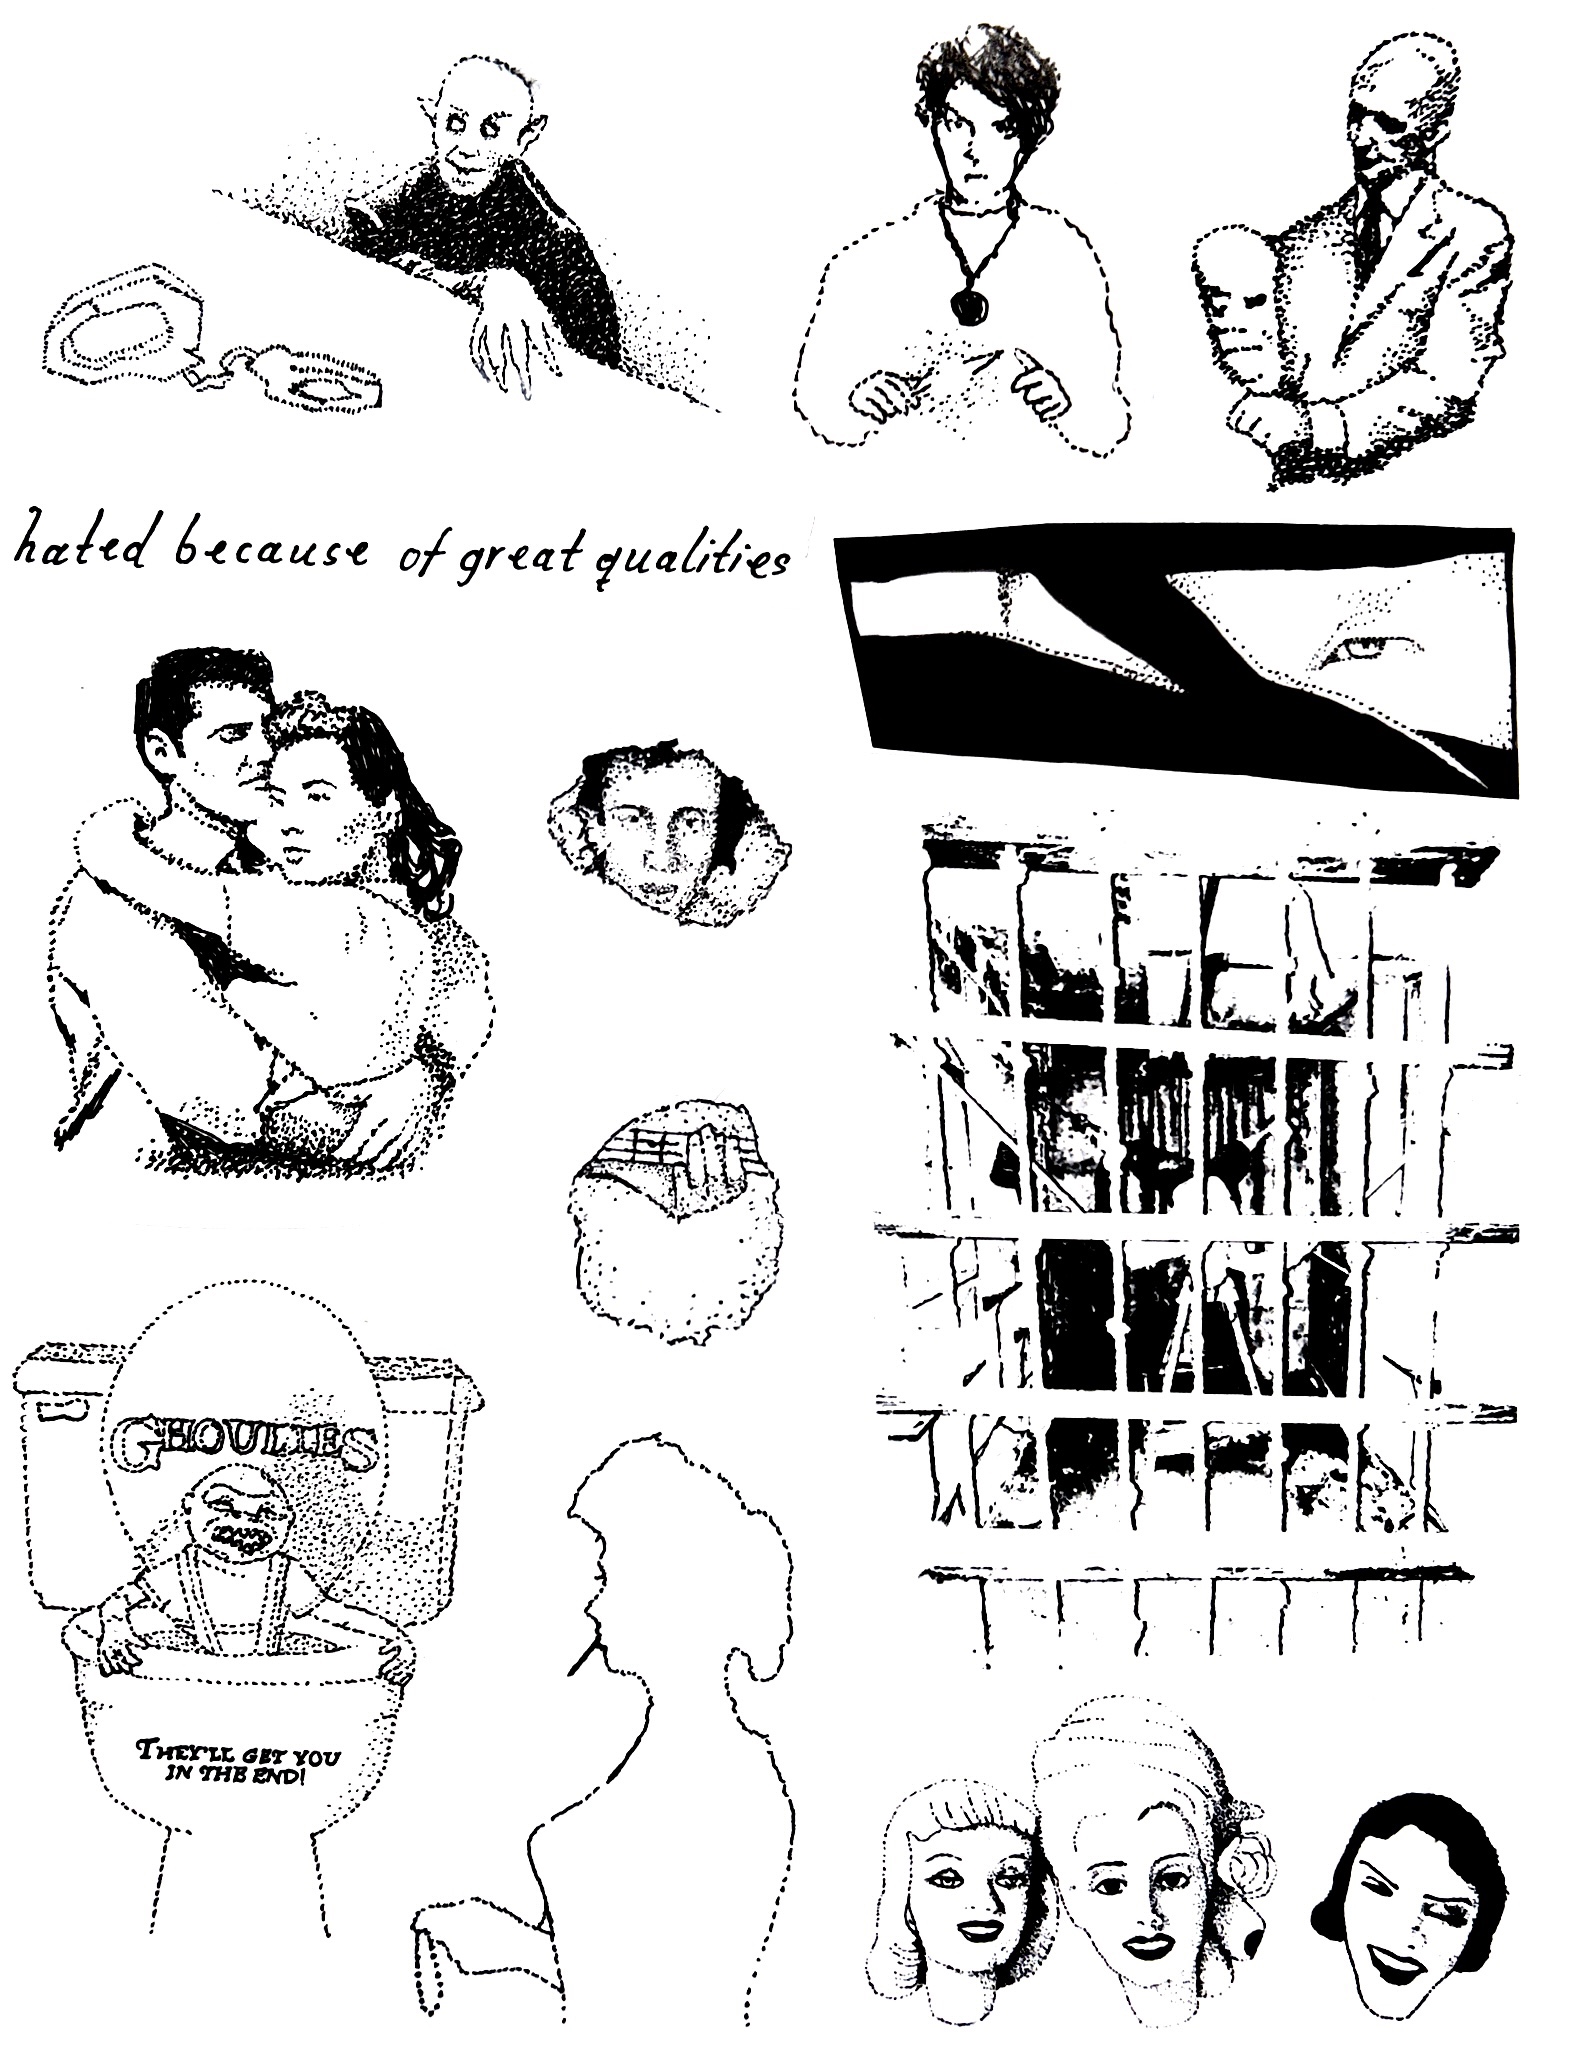 hated because of great qualities
GHOULIES
THEY'LL GET YOU
IN THE END!